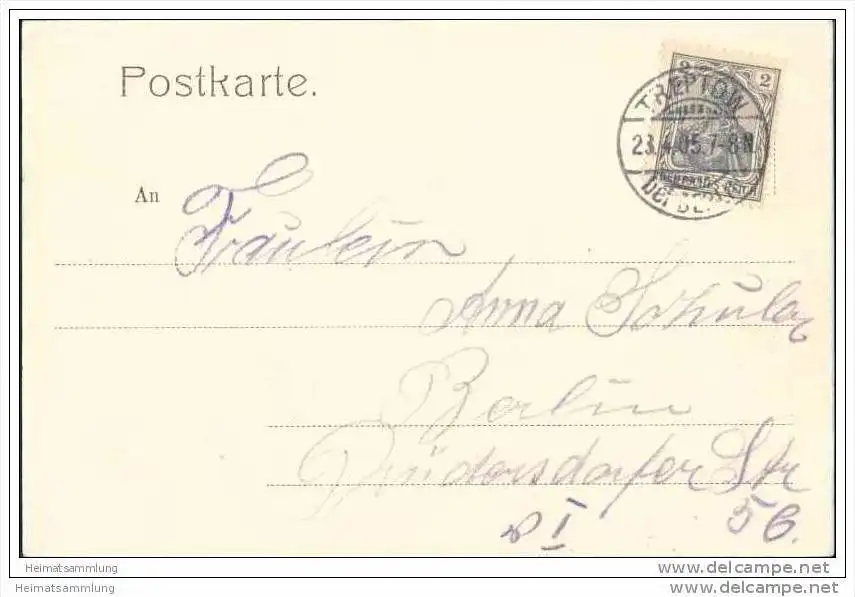 Postkarte.
2 2
TREPTOW
23.4.05.7-8N.
DEUTSCHES REICH
bei BERLIN
An
Fräulein
Anna Schula
Berlin
Rüdersdorfer Str
I 56.
Heimatsammlung
www.delcampe.net
Heimatsammlung
www.delcampe.net